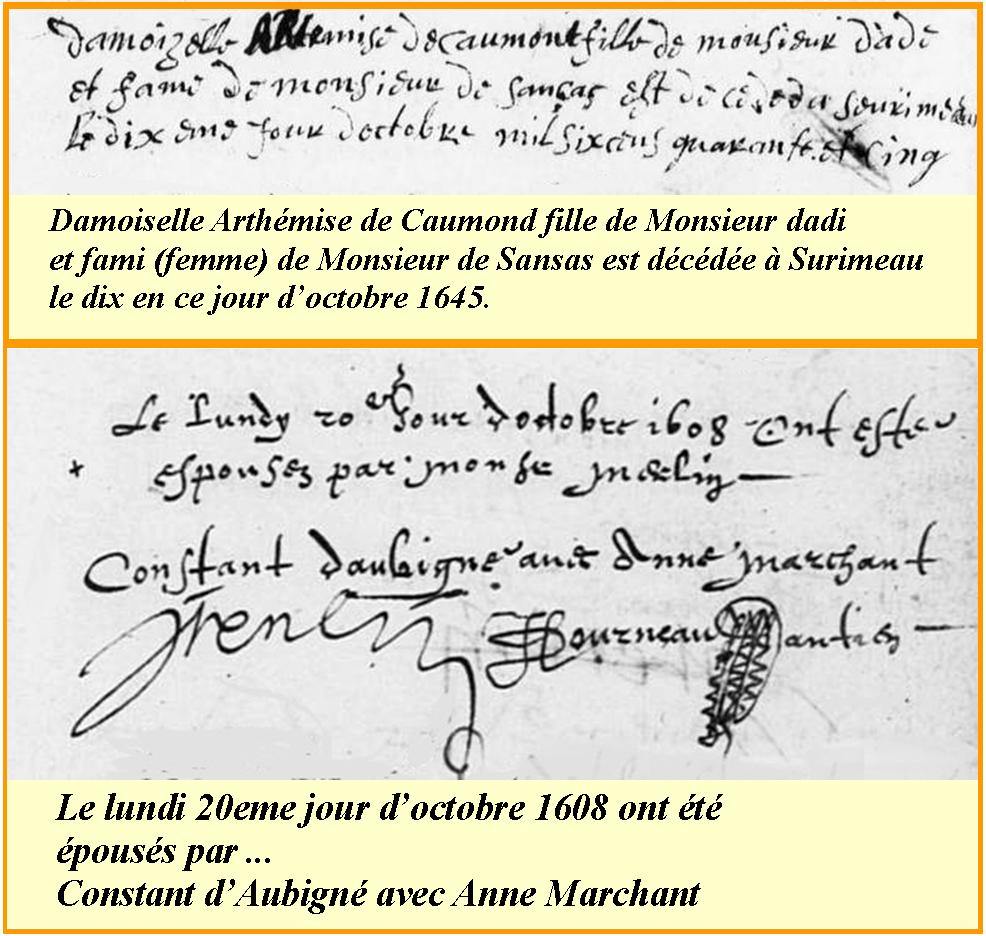 damoizelle ARtemise decaumont fille de monsieur dade
et fame de monsieur de sansas est decedee a seurimeau
le dix eme jour doctobre mil six cens quarante et cinq
Damoiselle Arthémise de Caumond fille de Monsieur dadi
et fami (femme) de Monsieur de Sansas est décédée à Surimeau
le dix en ce jour d’octobre 1645.
Le Lundy 20e jour doctobre 1608 Ont este
+ espousez par monsr merlin
Constant daubigne avec Anne marchant
Le lundi 20eme jour d’octobre 1608 ont été
épousés par ...
Constant d’Aubigné avec Anne Marchant